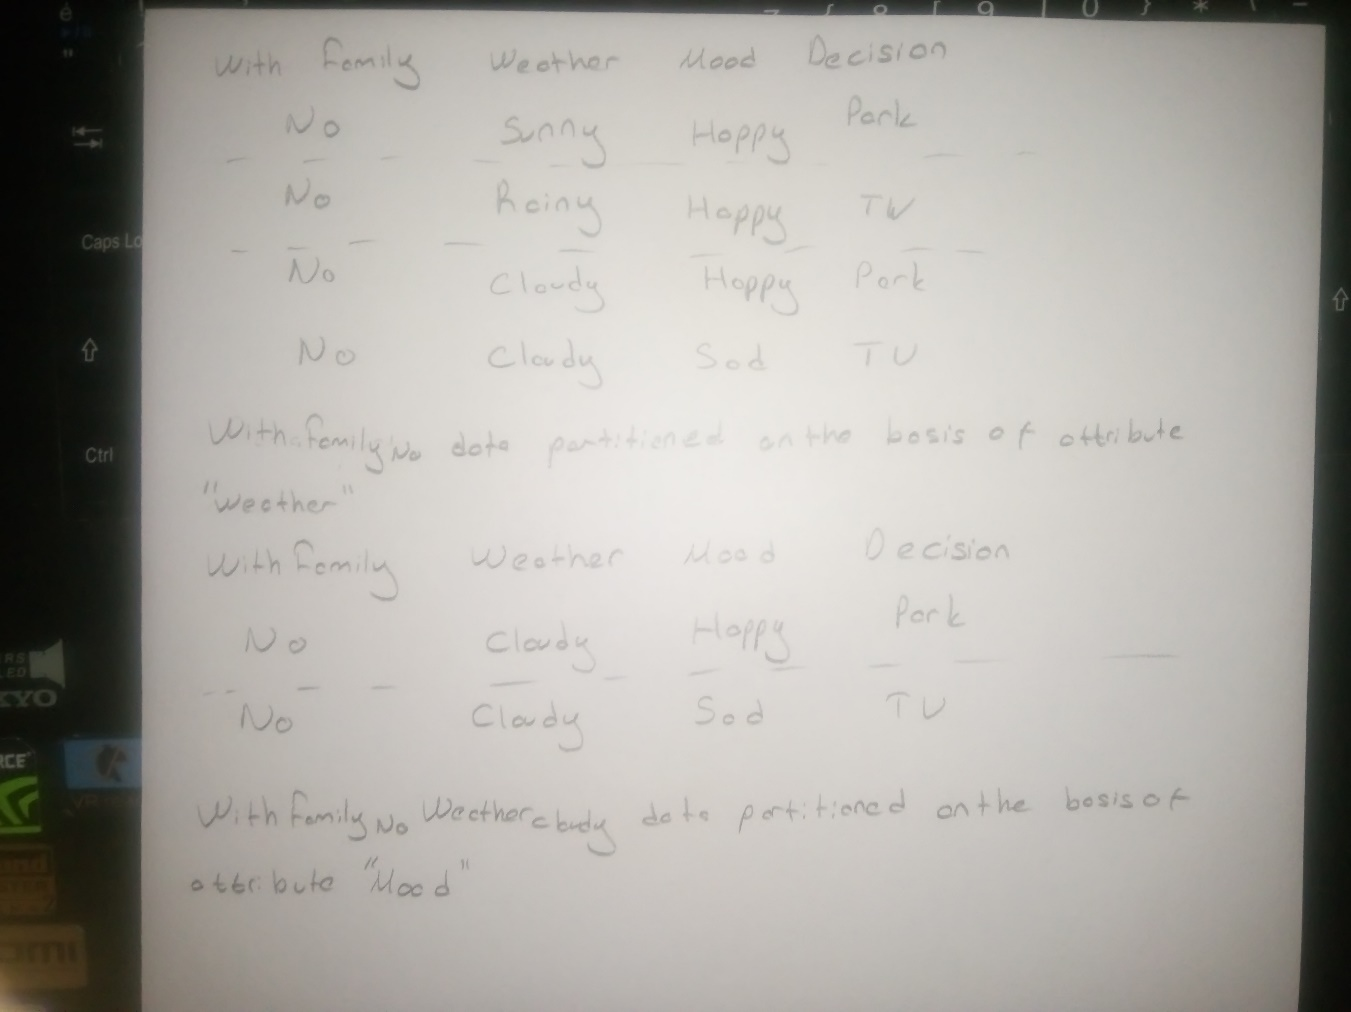 With Family Weather Mood Decision
No Sunny Happy Park
No Rainy Happy TV
No Cloudy Happy Park
No Cloudy Sad TV
With family No data partitioned on the basis of attribute
"Weather"
With Family Weather Mood Decision
No Cloudy Happy Park
No Cloudy Sad TV
With Family No Weather cloudy data partitioned on the basis of
attribute "Mood"
Caps Lo
Ctrl